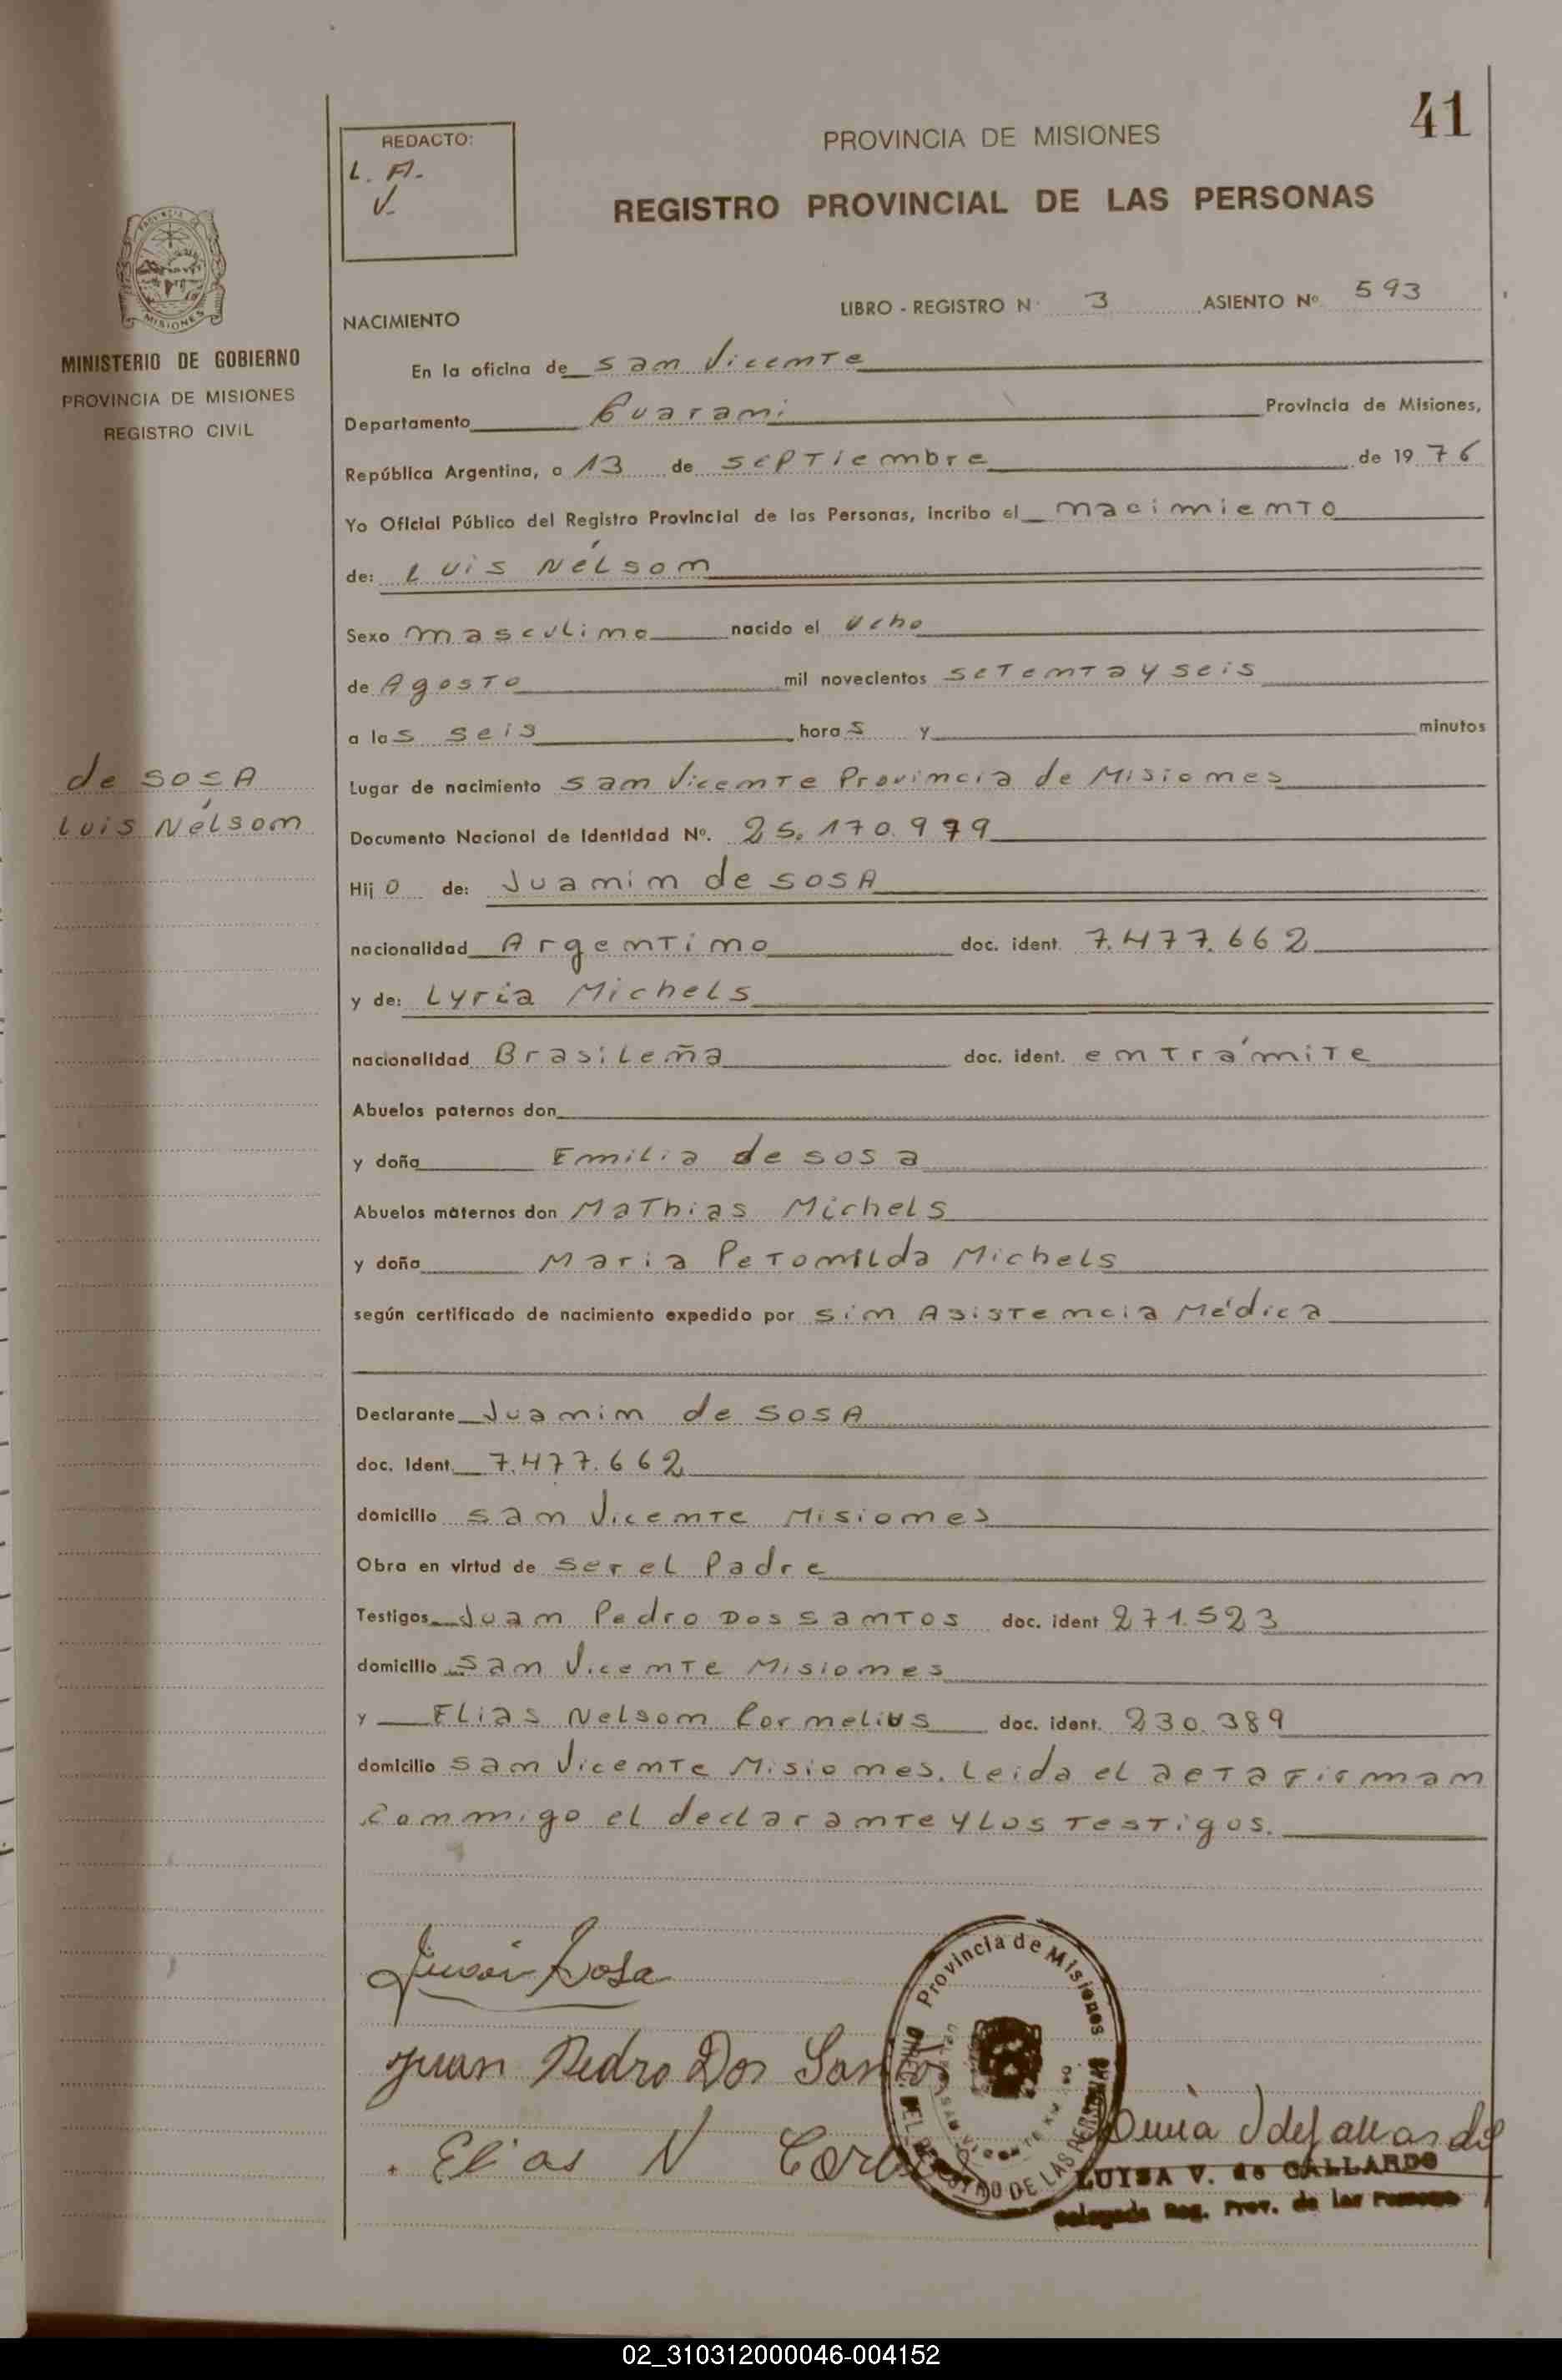 41
REDACTO:
L. A.
V.
PROVINCIA DE MISIONES
REGISTRO PROVINCIAL DE LAS PERSONAS
MISIONES
MINISTERIO DE GOBIERNO
PROVINCIA DE MISIONES
REGISTRO CIVIL
LIBRO - REGISTRO Nº 3 ASIENTO Nº 593
NACIMIENTO
En la oficina de San Vicente
Departamento Guarani Provincia de Misiones,
República Argentina, a 13 de septiembre de 1976
Yo Oficial Público del Registro Provincial de las Personas, incribo el nacimiento
de: Luis Nélson
Sexo masculino nacido el ocho
de Agosto mil novecientos setenta y seis
a las seis horas y minutos
de SOSA
Luis Nélson
Lugar de nacimiento San Vicente Provincia de Misiones
Documento Nacional de Identidad Nº. 25.170.979
Hijo de: Juanin de SOSA
nacionalidad Argentino doc. ident. 7.477.662
y de: Lyria Michels
nacionalidad Brasileña doc. ident. en trámite
Abuelos paternos don
y doña Emilia de sosa
Abuelos maternos don Mathias Michels
y doña Maria Petonilda Michels
según certificado de nacimiento expedido por sin Asistencia Médica
Declarante Juanin de SOSA
doc. Ident. 7.477.662
domicilio San Vicente Misiones
Obra en virtud de ser el Padre
Testigos Juan Pedro Dos Santos doc. ident 271.523
domicilio San Vicente Misiones
y Elias Nelson Cornelius doc. ident. 230.389
domicilio San Vicente Misiones. Leida el acta firman
conmigo el declarante y los testigos.
Juan Sosa
Juan Pedro Dos Santos
Elias N
Provincia de Misiones
DEL REGISTRO DE LAS PERSONAS
LUISA V. de GALLARDO
Delegada Reg. Prov. de las Personas
02_310312000046-004152